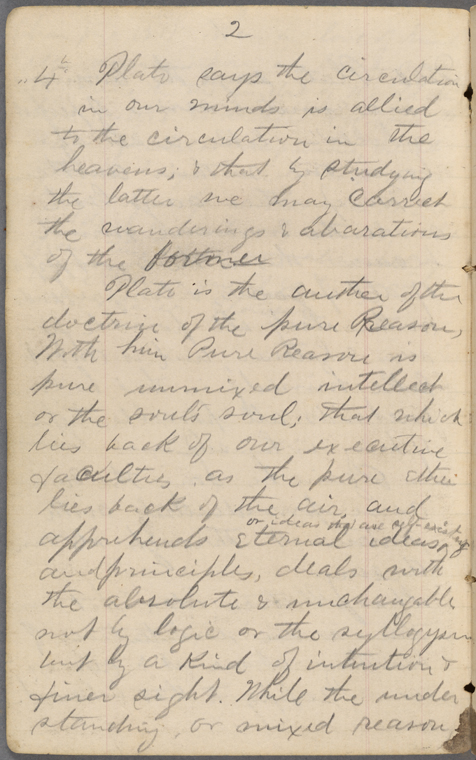 2
4 Plato says the circulation
in our minds is allied
to the circulation in the
heavens; & that by studying
the latter we may correct
the wanderings & abarations
of the former
Plato is the author of the
doctrine of the pure Reason,
With him Pure Reason is
pure unmixed intellect
or the soul's soul; that which
lies back of our executive
faculties, as the pure ether
lies back of the air, and
or ideas that are self-existing
apprehends Eternal ideas
and principles, deals with
the absolute & unchangable
not by logic or the syllogysm
but by a kind of intuition &
finer sight. While the under
standing, or mixed reason